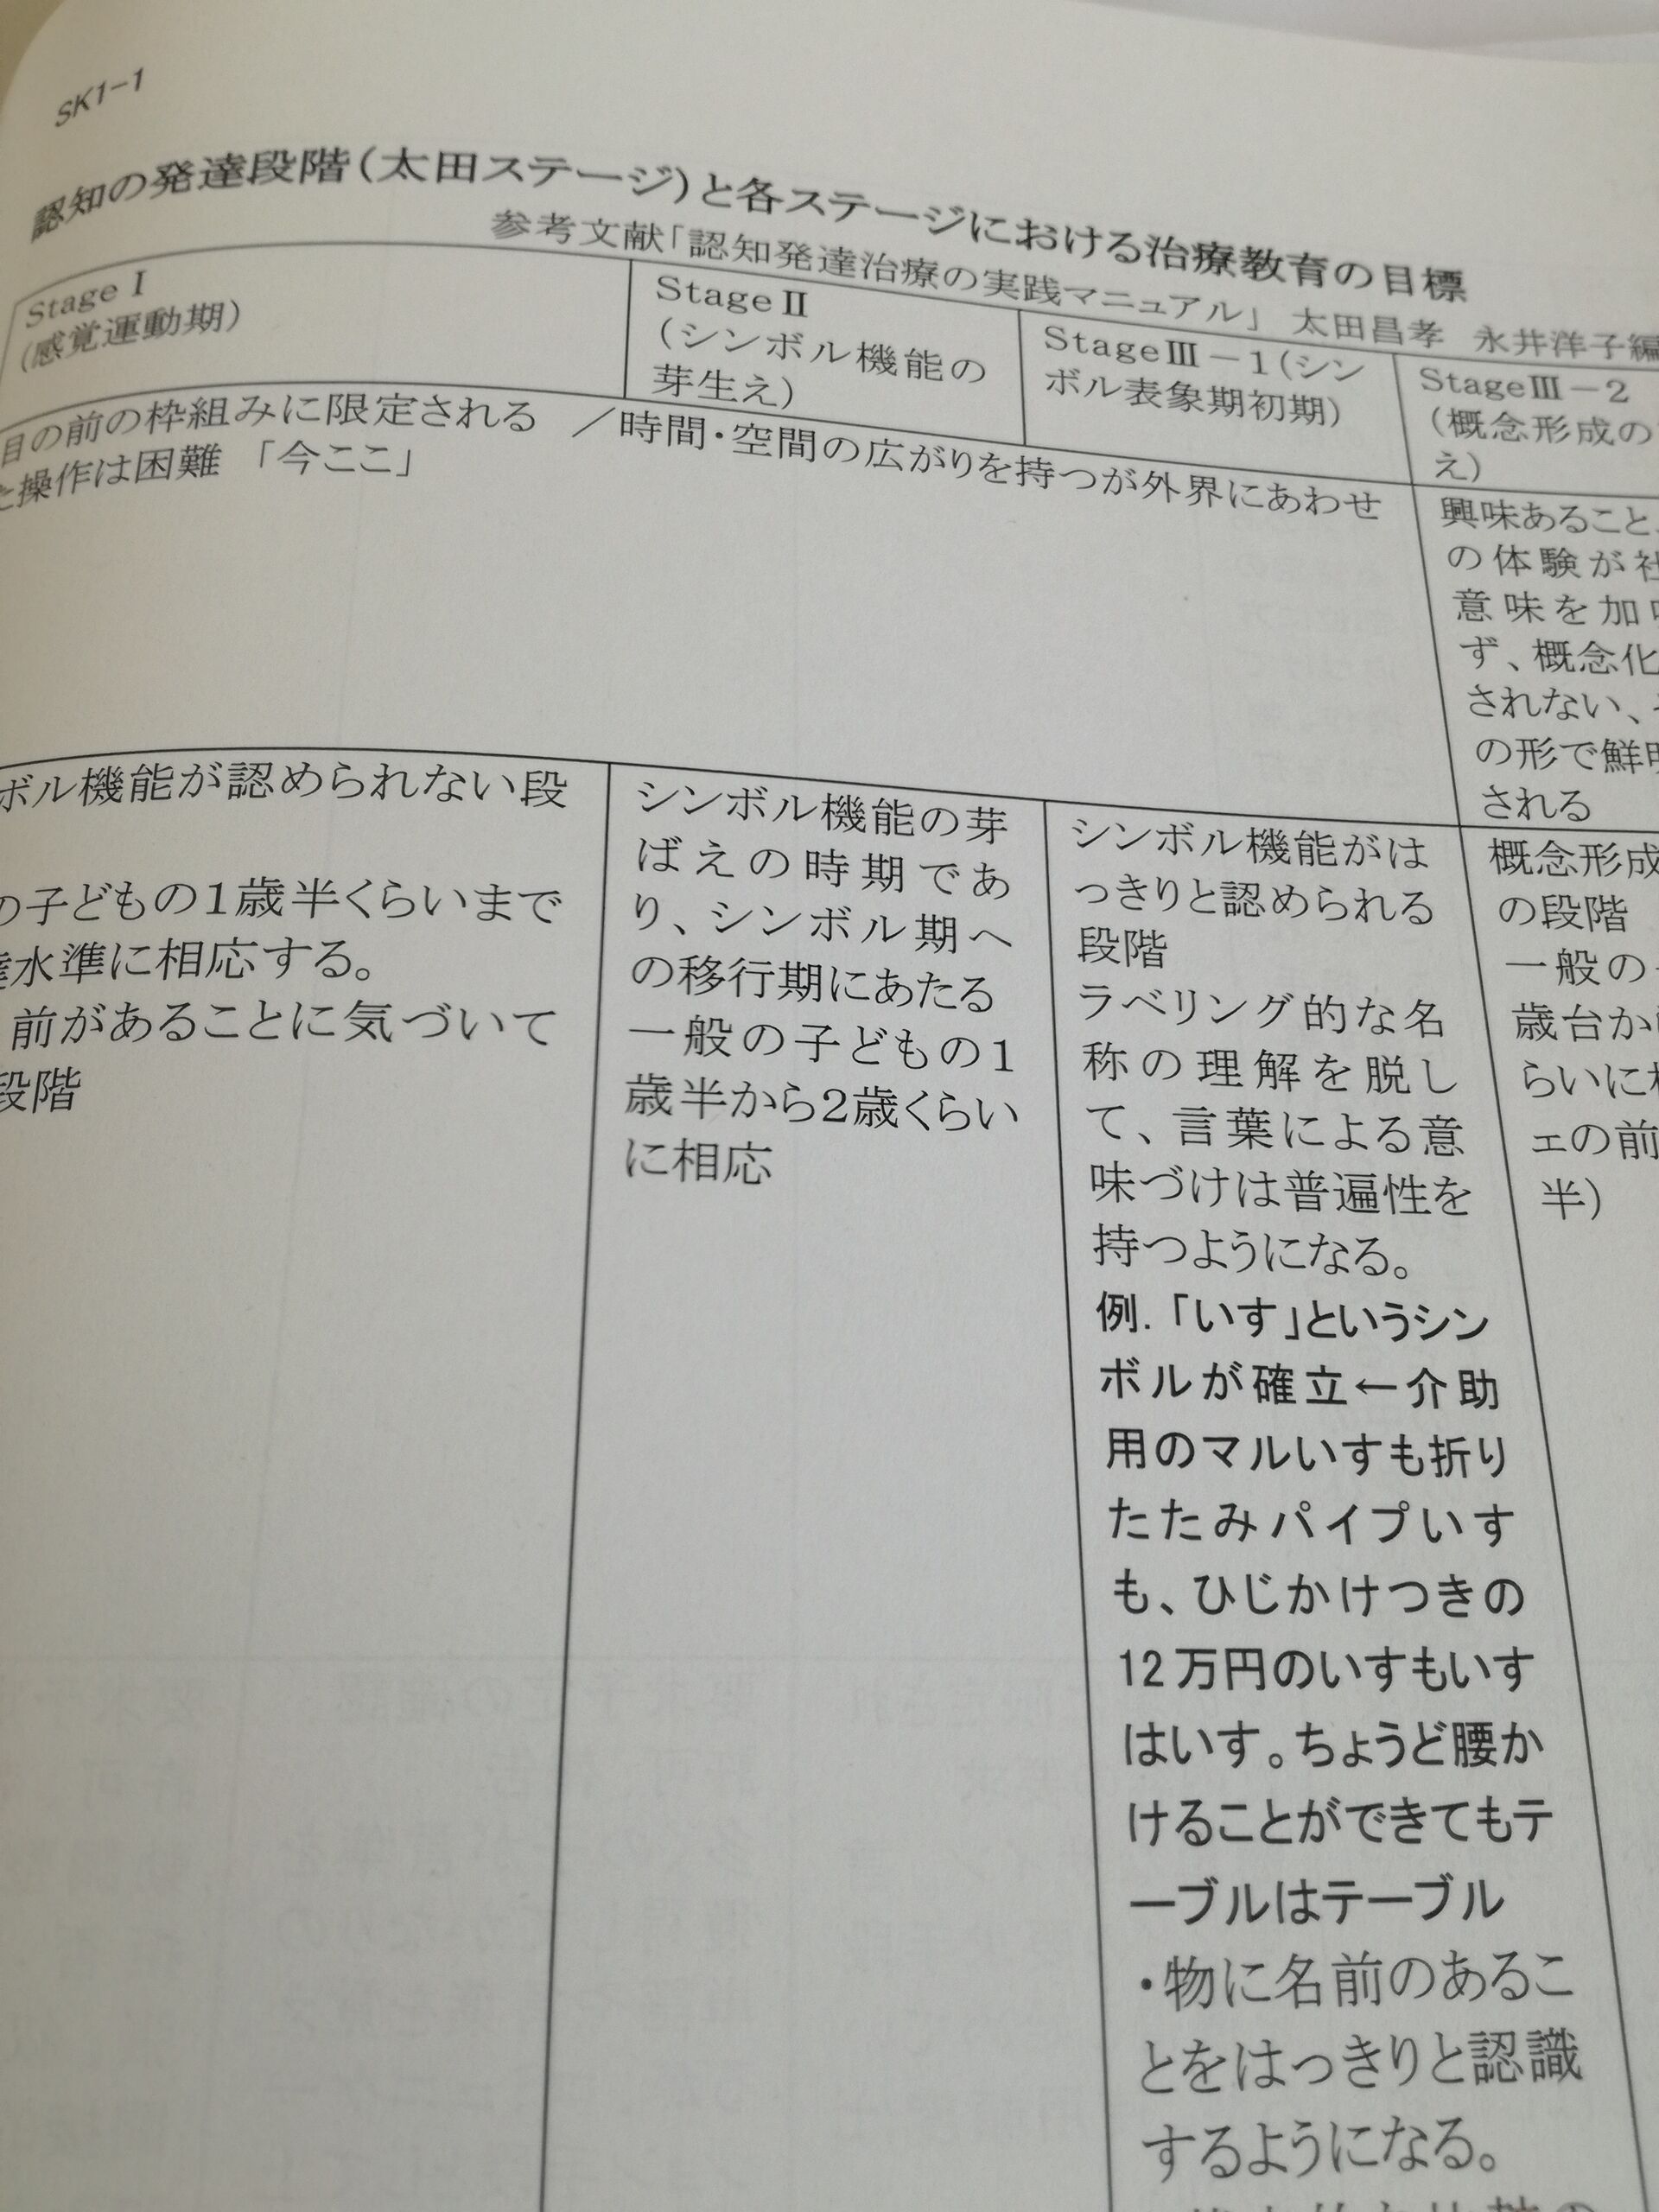 SK1-1
認知の発達段階(太田ステージ)と各ステージにおける治療教育の目標
参考文献「認知発達治療の実践マニュアル」 太田昌孝 永井洋子編
Stage Ⅰ
(感覚運動期)
Stage Ⅱ
(シンボル機能の
芽生え)
StageⅢ-1(シン
ボル表象期初期)
StageⅢ-2
(概念形成の
え)
目の前の枠組みに限定される ／時間・空間の広がりを持つが外界にあわせ
た操作は困難 「今ここ」
興味あること、
の体験が社
意味を加味
ず、概念化
されない、そ
の形で鮮明
される
ボル機能が認められない段
の子どもの1歳半くらいまで
達水準に相応する。
前があることに気づいて
段階
シンボル機能の芽
ばえの時期であ
り、シンボル期へ
の移行期にあたる
一般の子どもの1
歳半から2歳くらい
に相応
シンボル機能がは
っきりと認められる
段階
ラベリング的な名
称の理解を脱し
て、言葉による意
味づけは普遍性を
持つようになる。
例.「いす」というシン
ボルが確立←介助
用のマルいすも折り
たたみパイプいす
も、ひじかけつきの
12万円のいすもいす
はいす。ちょうど腰か
けることができてもテ
ーブルはテーブル
・物に名前のあるこ
とをはっきりと認識
するようになる。
概念形成
の段階
一般の
歳台か
らいに相
ェの前
半)